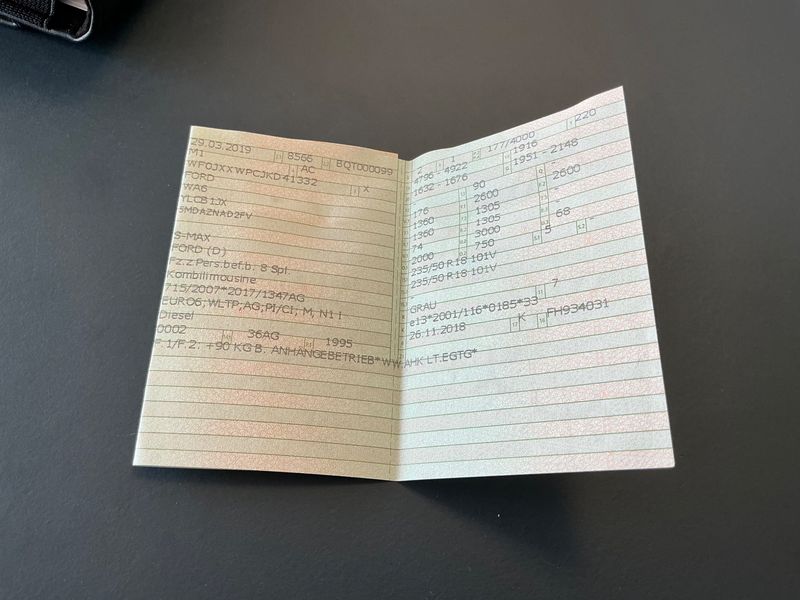 29.03.2019 8566 BQT000099
M1 AC
WF0JXXWPCJKD41332 X
FORD
WA6
YLCB1JX
5MDAZNAD2FV
S-MAX
FORD (D)
Fz.z.Pers.bef.b. 8 Spl.
Kombilimousine
715/2007*2017/1347AG
EURO6;WLTP;AG;PI/CI; M, N1 I
Diesel
0002 36AG 1995
F.1/F.2. +90 KG B. ANHÄNGEBETRIEB*WW.AHK LT.EGTG*
2 1 177/4000 220
4796 - 4922 1916
1632 - 1676 1951 - 2148
176 90 -
1360 2600 2600
1360 1305 -
74 1305 -
2000 3000 68
- 750 5 -
235/50 R18 101V
235/50 R18 101V
-
GRAU 7
e13*2001/116*0185*33
26.11.2018 K FH934031